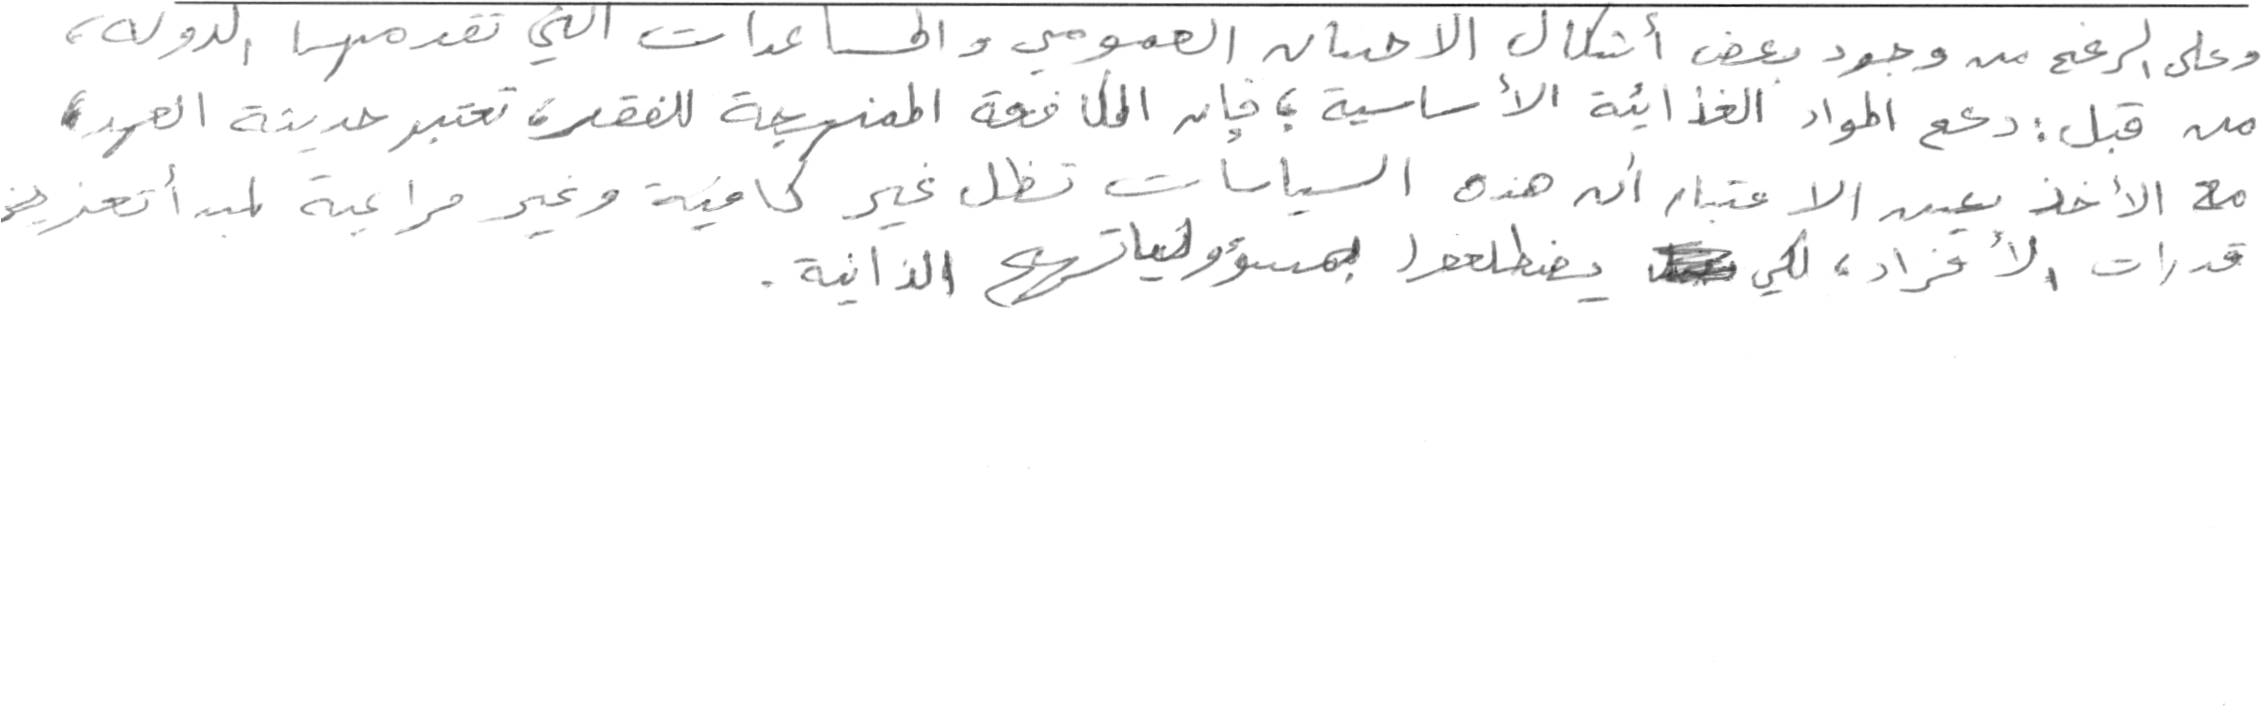 وعلى الرغم من وجود بعض أشكال الاحسان العمومي والمساعدات التي تقدمها الدولة،
من قبل: دعم المواد الغذائية الأساسية؛ فإن المكافحة الممنهجة للفقر، تعتبر حديثة العهد،
مع الأخذ بعين الاعتبار أن هذه السياسات تظل غير كافية وغير مراعية لمبدأ تعزيز
قدرات الأفراد، لكي يضطلعوا بمسؤولياتهم الذاتية.